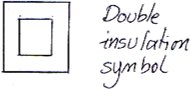 Double
insulation
symbol